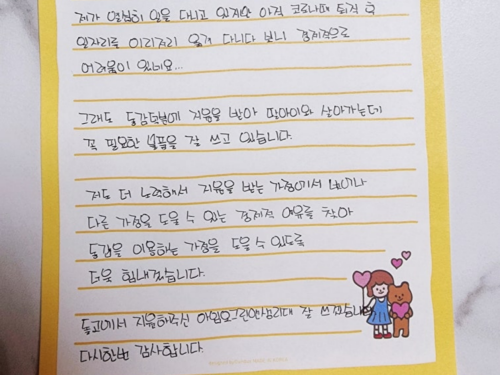 제가 열심히 일을 다니고 있지만 아직 코로나때 퇴직 후
일자리를 이리저리 옮겨 다니다 보니 경제적으로
어려움이 있네요...
그래도 돌감도분에 지원을 받아 딸아이와 살아가는데
꼭 필요한 물품을 잘 쓰고 있습니다.
저도 더 노력해서 지원을 받는 가정에서 나아가
다른 가정을 도울 수 있는 경제적 여유를 찾아
돌감을 이용하는 가정을 도울 수 있도록
더욱 힘내겠습니다.
에서 지원해주신 아임오그린 생리대 잘 쓰겠습니다
다시한번 감사합니다.